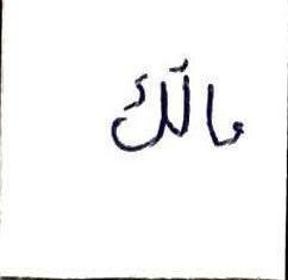 مالَكَ